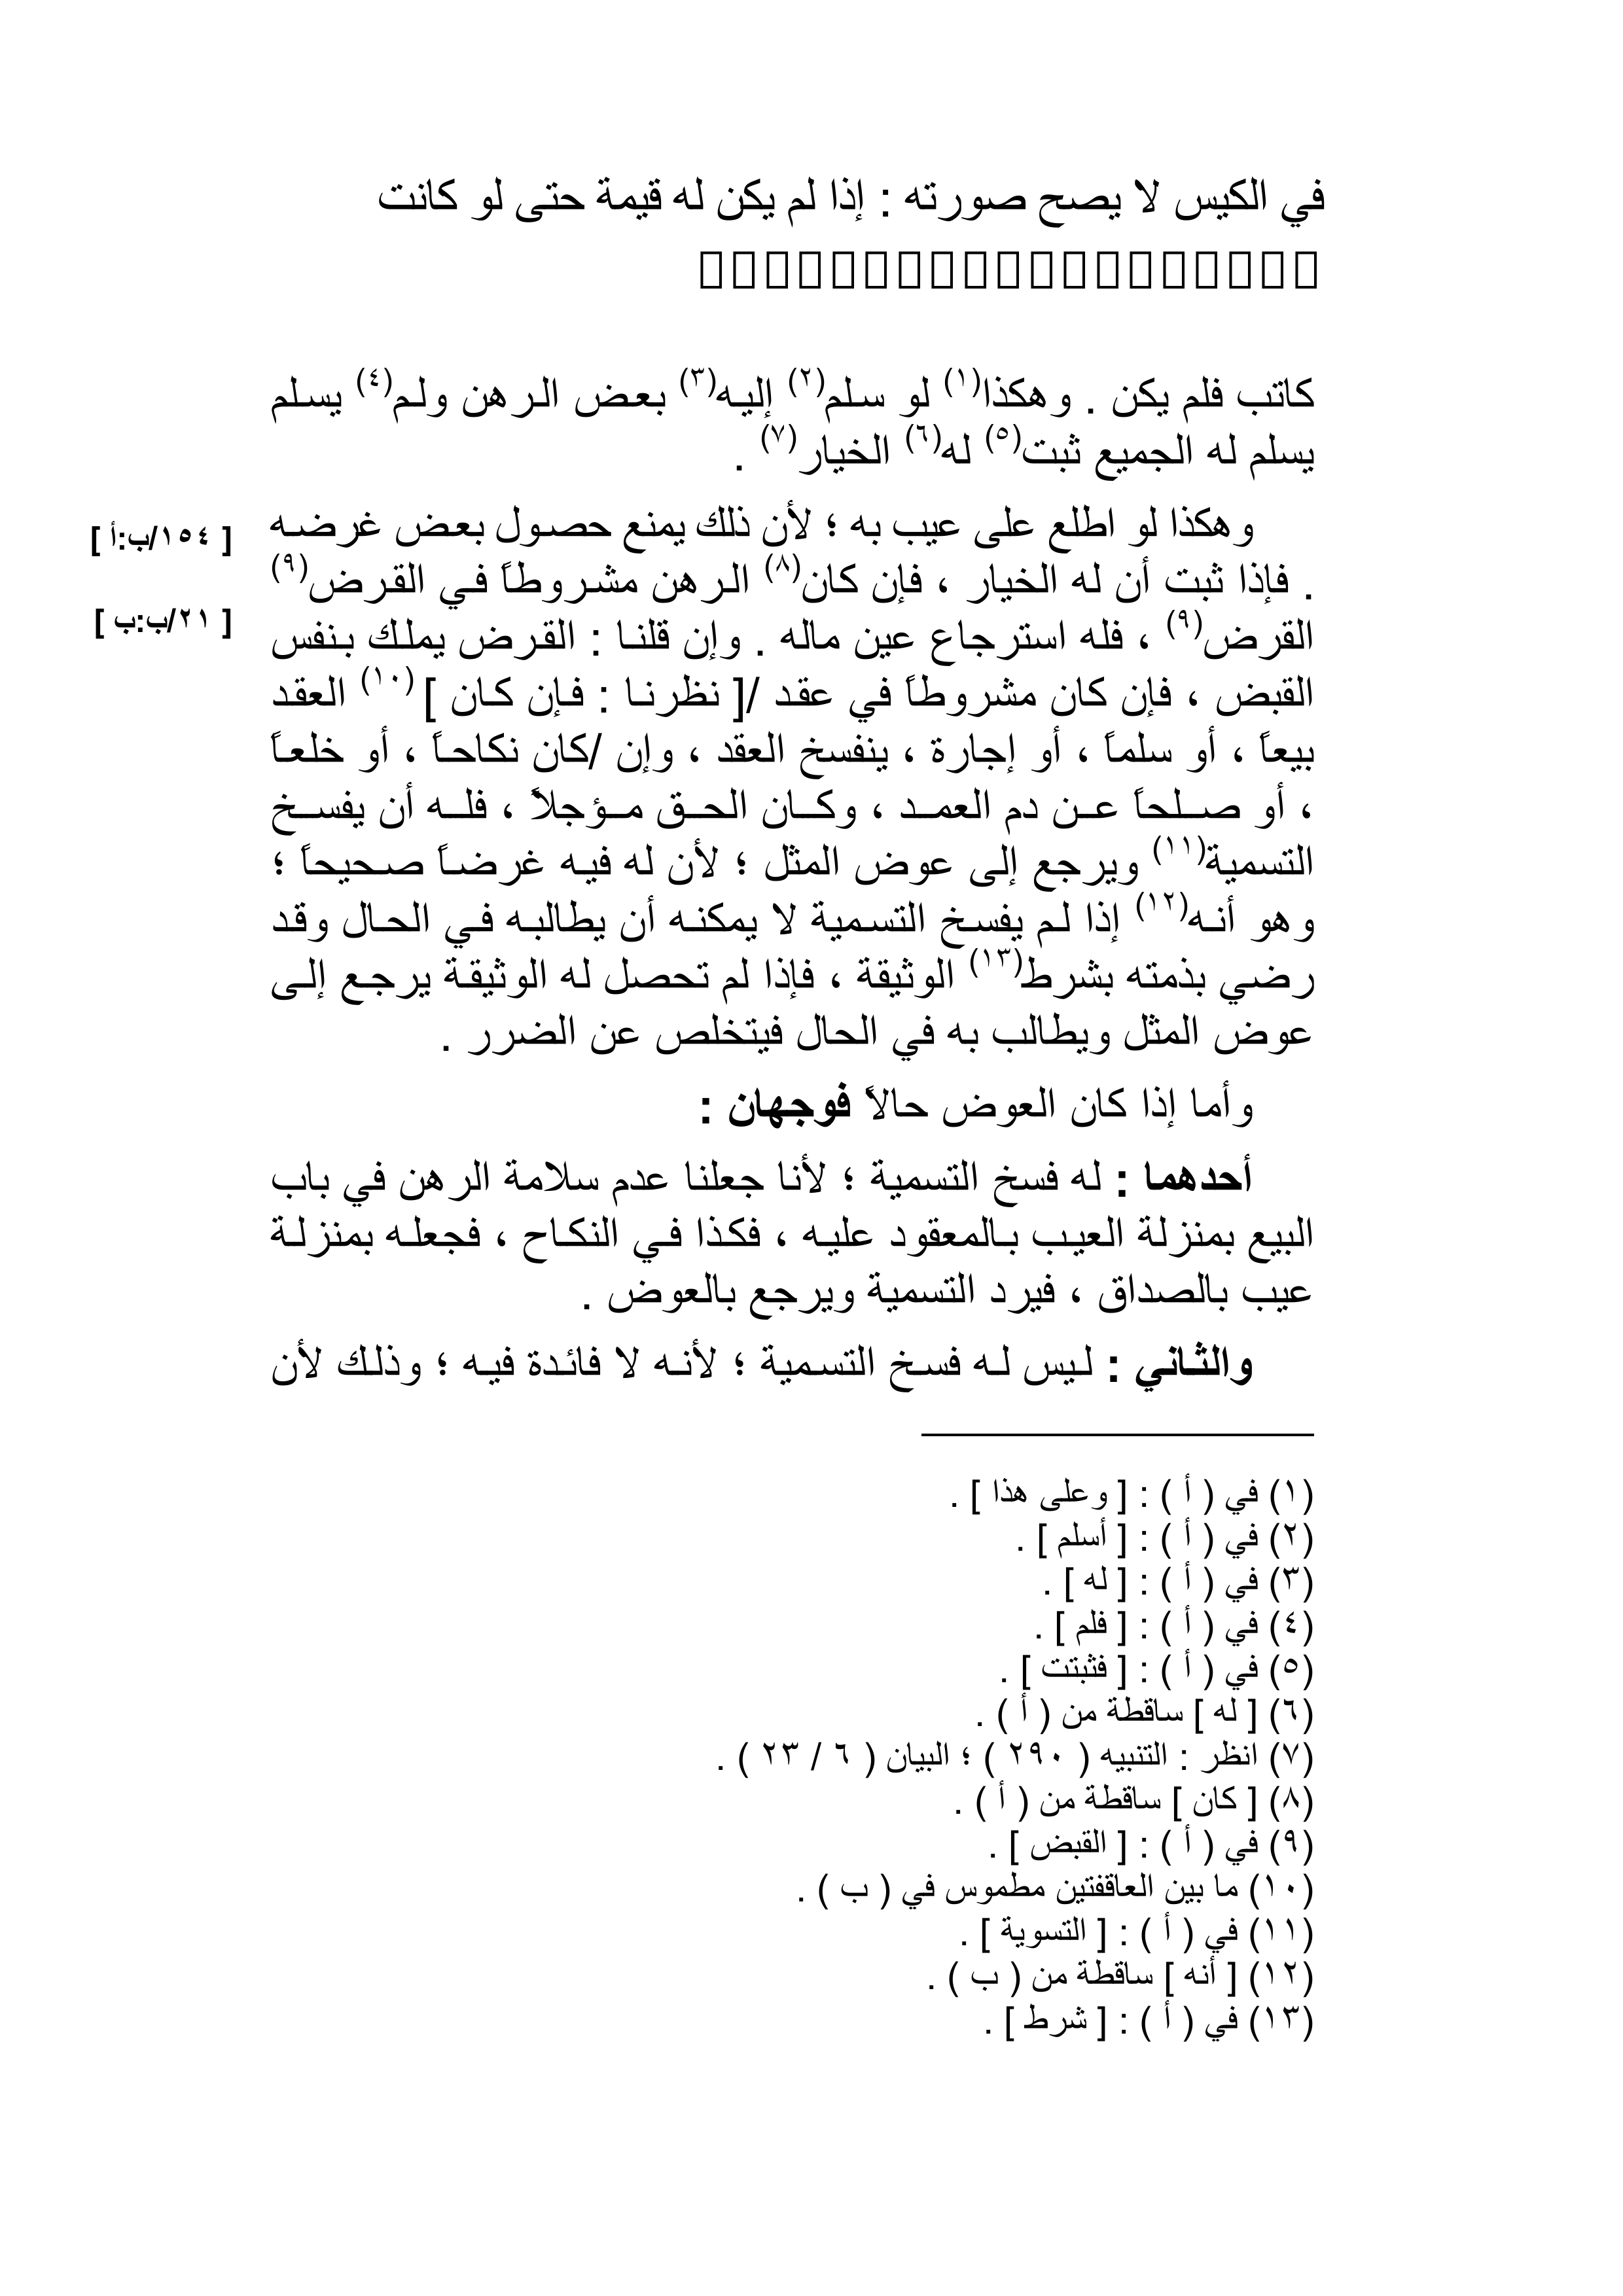 في الكيس لا يصح صورته : إذا لم يكن له قيمة حتى لو كانت
كاتب فلم يكن . وهكذا(١) لو سلم(٢) إليه(٣) بعض الرهن ولم(٤) يسلم
يسلم له الجميع ثبت(٥) له(٦) الخيار(٧) .
وهكذا لو اطلع على عيب به ؛ لأن ذلك يمنع حصول بعض غرضه
[ ١٥٤/ب:أ ]
. فإذا ثبت أن له الخيار ، فإن كان(٨) الرهن مشروطاً في القرض(٩)
[ ٢١/ب:ب ]
القرض(٩) ، فله استرجاع عين ماله . وإن قلنا : القرض يملك بنفس
القبض ، فإن كان مشروطاً في عقد /[ نظرنا : فإن كان ](١٠) العقد
بيعاً ، أو سلماً ، أو إجارة ، ينفسخ العقد ، وإن /كان نكاحاً ، أو خلعاً
، أو صلحاً عن دم العمد ، وكان الحق مؤجلاً ، فله أن يفسخ
التسمية(١١) ويرجع إلى عوض المثل ؛ لأن له فيه غرضاً صحيحاً ؛
وهو أنه(١٢) إذا لم يفسخ التسمية لا يمكنه أن يطالبه في الحال وقد
رضي بذمته بشرط(١٣) الوثيقة ، فإذا لم تحصل له الوثيقة يرجع إلى
عوض المثل ويطالب به في الحال فيتخلص عن الضرر .
وأما إذا كان العوض حالاً فوجهان :
أحدهما : له فسخ التسمية ؛ لأنا جعلنا عدم سلامة الرهن في باب
البيع بمنزلة العيب بالمعقود عليه ، فكذا في النكاح ، فجعله بمنزلة
عيب بالصداق ، فيرد التسمية ويرجع بالعوض .
والثاني : ليس له فسخ التسمية ؛ لأنه لا فائدة فيه ؛ وذلك لأن
(١) في ( أ ) : [ وعلى هذا ] .
(٢) في ( أ ) : [ أسلم ] .
(٣) في ( أ ) : [ له ] .
(٤) في ( أ ) : [ فلم ] .
(٥) في ( أ ) : [ فثبتت ] .
(٦) [ له ] ساقطة من ( أ ) .
(٧) انظر : التنبيه ( ٢٩٠ ) ؛ البيان ( ٦ / ٢٣ ) .
(٨) [ كان ] ساقطة من ( أ ) .
(٩) في ( أ ) : [ القبض ] .
(١٠) ما بين العاقفتين مطموس في ( ب ) .
(١١) في ( أ ) : [ التسوية ] .
(١٢) [ أنه ] ساقطة من ( ب ) .
(١٣) في ( أ ) : [ شرط ] .